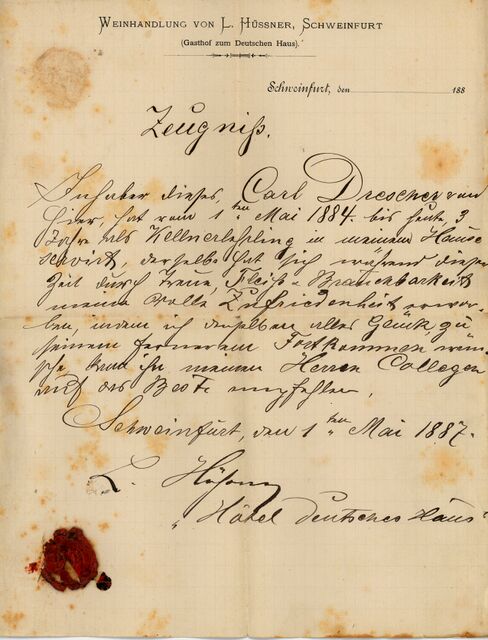 WEINHANDLUNG VON L. HÜSSNER, SCHWEINFURT
(Gasthof zum Deutschen Haus).
Schweinfurt, den 188
Zeugniß.
Inhaber dieses, Carl Drescher von
hier, hat vom 1ten Mai 1884 bis heute 3
Jahre als Kellnerlehrling in meinem Hause
servirt, derselbe hat sich während dieser
Zeit durch Treue, Fleiß u. Brauchbarkeit
meine volle Zufriedenheit erwor-
ben, indem ich demselben alles Glück zu
seinem ferneren Fortkommen wün-
sche kann ihn meinen Herren Collegen
auf das Beste empfehlen.
Schweinfurt, den 1ten Mai 1887.
L. Hüssner
„Hôtel deutsches Haus“